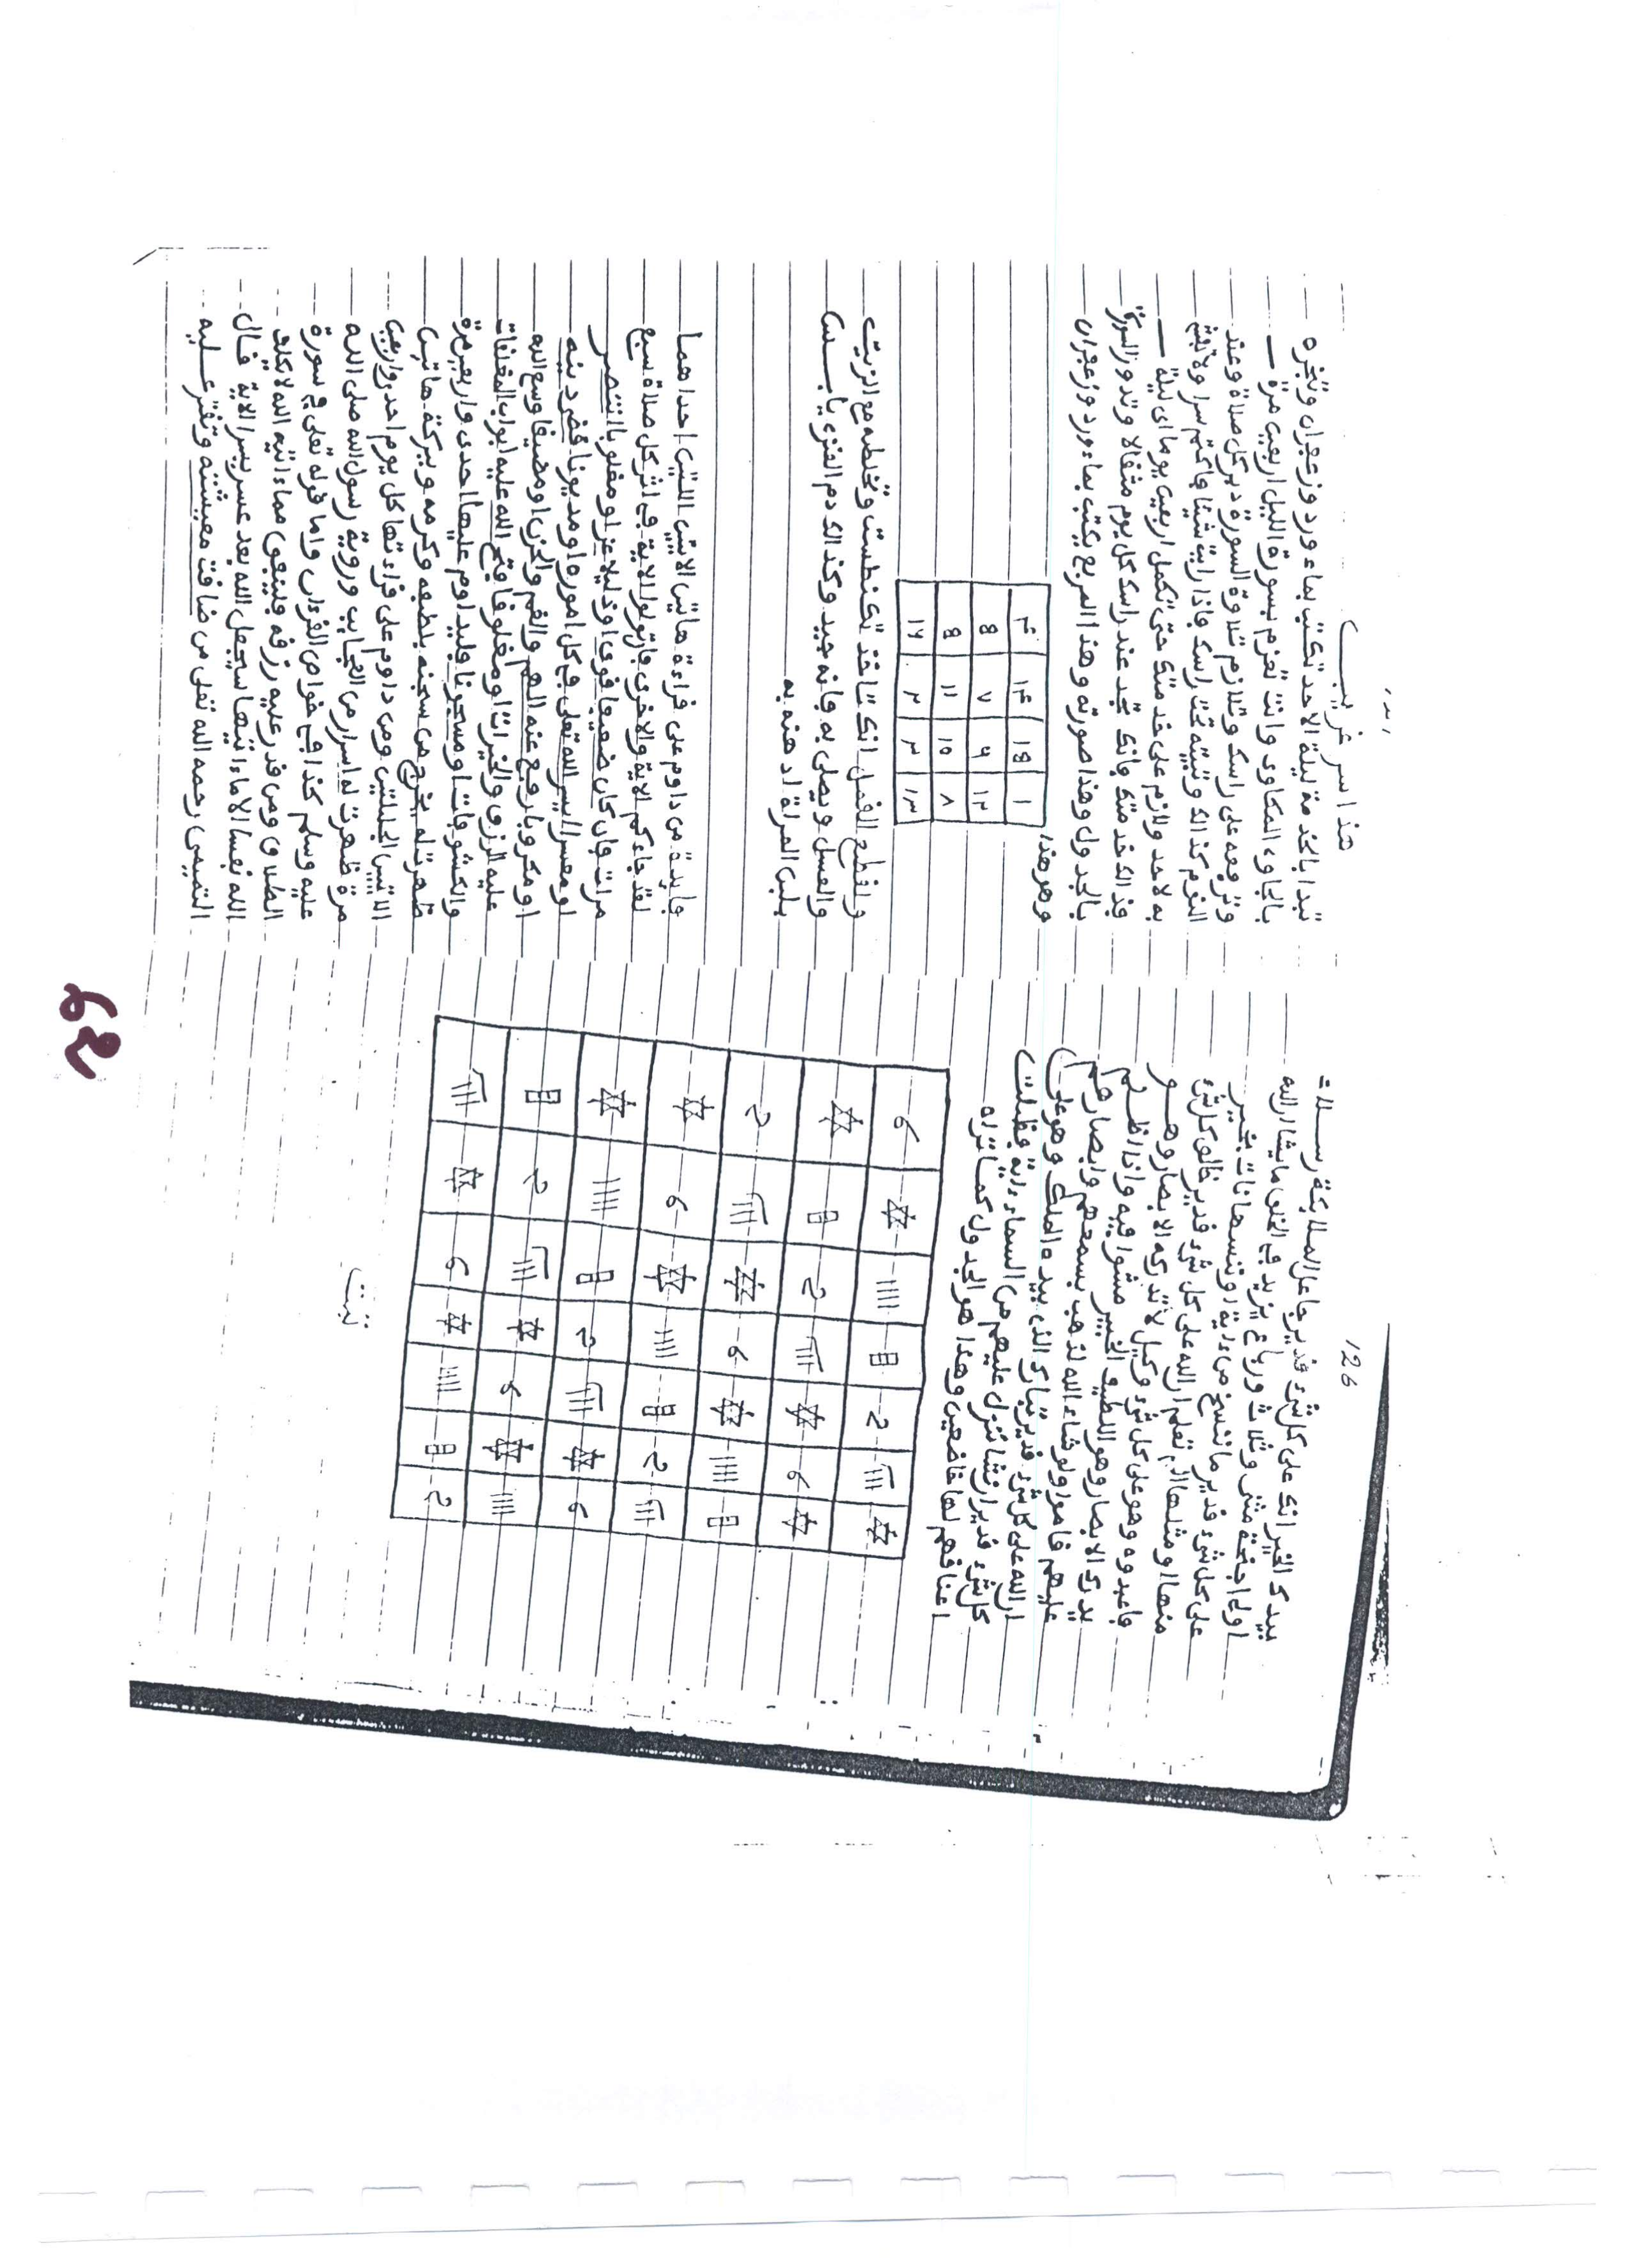 126
رسلا
بيدك الخير انك على كل شىء قدير جاعل الملائكة
اولى اجنحة مثنى وثلاث ورباع يزيد في الخلق ما يشاء ان الله
على كل شىء قدير ما ننسخ من ءاية او ننسها نات بخير
منها او مثلها الم تعلم ان الله على كل شىء قدير خالق كل شىء
فاعبدوه وهو على كل شىء وكيل لا تدركه الابصار وهو
يدرك الابصار وهو اللطيف الخبير مشوا فيه واذا اظلم
عليهم قاموا ولو شاء الله لذهب بسمعهم وابصارهم
ان الله على كل شىء قدير تبارك الذي بيده الملك وهو على
كل شىء قدير ان نشا ننزل عليهم من السماء ءاية فظلت
اعناقهم لها خاضعين وهذا هو الجدول كما تراه
تمت
هذا سر غريب
تبدا بالخدمة ليلة الاحد تكتب بماء ورد وزعفران وتبخره
بالجاوى المكاوى وانت تعزم بسورة الليل اربعين مرة
وترفعه على راسك وتلازم تلاوة السورة دبر كل صلاة وعند
النوم كذالك وتبيته تحت راسك فاذا رايت شيئا فاكتم سرا ولا تبح
به لاحد ولازم على خدمتك حتى تكمل اربعين يوما اى ليلة
فذالك خدمتك فانك تجد عند راسك كل يوم مثقالا وتدور السورة
بالجدول وهذا صورته وهذا المربع يكتب بماء ورد وزعفران
وهو هذا
۴ ۱۴ ۱۵ ۱
۵ ۷ ۶ ۱۲
۵ ۱۱ ۱۰ ۸
۱۶ ۲ ۳ ۱۳
ولقطع القمل انك تاخذ تكنطست وتخلطه مع الزيت
والعسل ويطلى به فانه جيد وكذالك دم العنزى يابس
بلبن المراة ادهنه به
فايدة من داوم على قراءة هاتين الايتين اللتين احداهما
لقد جاءكم الاية والاخرى فان تولوا الاية في اثر كل صلاة سبع
مرات فان كان ضعيفا قوى او ذليلا عز او مغلوبا انتصر
او معسرا يسر الله تعلى في كل اموره او مديونا قضى دينه
او مكروبا رفع عنه الهم والغم والحزن او مضيقا وسع الله
عليه الرزق والخيرات او مغلوقا فتح الله عليه ابواب المغلقات
والكشوفات او مسجونا فليداوم عليها احدى واربعين مرة
ظهرت له يخرج من سجنه بلطفه وكرمه وبركة هاتين
الايتين الجليلتين ومن داوم على قراءتها كل يوم احد واربعين
مرة ظهرت له اسرار من العجايب وروية رسول الله صلى الله
عليه وسلم كذا في خواص القرءان واما قوله تعلى في سورة
الطلاق ومن قدر عليه رزقه فلينفق مما ءاتيه الله لا يكلف
الله نفسا الا ما ءاتيها سيجعل الله بعد عسر يسرا الاية قال
التميمى رحمه الله تعلى من ضاقت معيشته وتقتر عليه
62